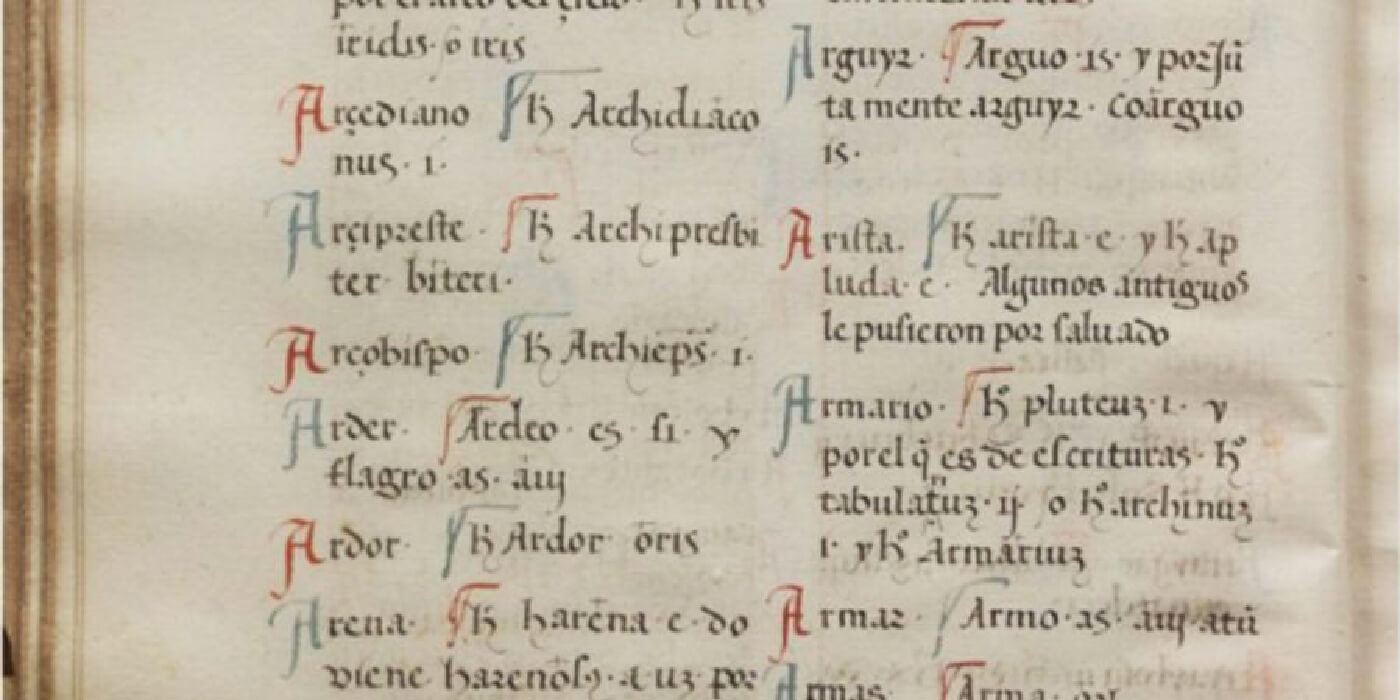 iridis· o iris
Arçediano ħ Archidiaco
nus· i·
Arçipreste · ħ Archipresbi
ter· biteri·
Arçobispo· ħ Archieps̄· i·
Arder· Ardeo· es· si· y
flagro·as·aui
Ardor· ħ Ardor oris
Arena· ħ harena e·do
viene harenosꝰ·a uꝫ por
Arguyr· Arguo·is· y por Jū
ta mente arguyr· coarguo
is·
Arista. ħ arista·e· y ħ ap
luda·e· Algunos antiguos
le pusieron por saluado
Armario· ħ pluteuꝫ·i· y
porel q̄ es de escrituras· ħº
tabulatuꝫ·ij· o ħº archinuꝫ
i· y ħº Armariuꝫ
Armar· Armo·as·aui·atū
Armas Arma·